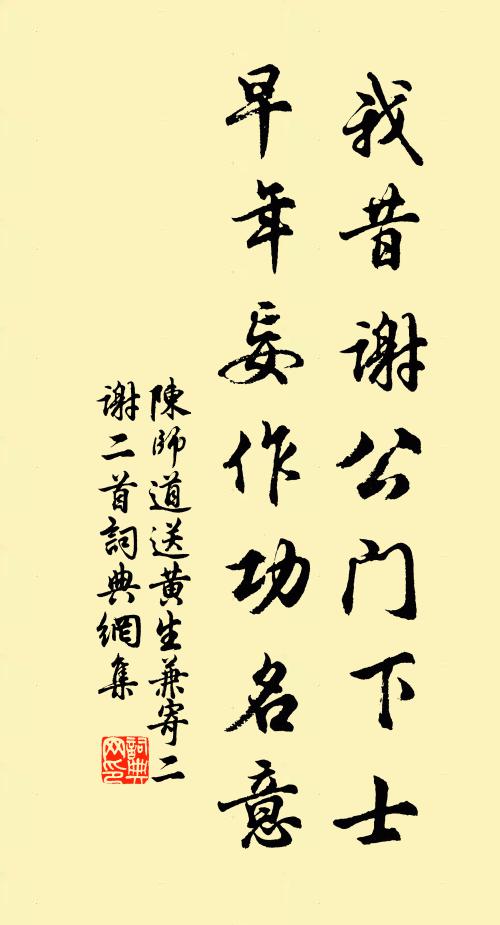 我昔谢公门下士
早年妄作功名意
陳師道送黄生兼寄二
谢二首詞典網集
詞典网印